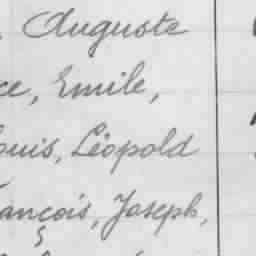 Auguste
ce, Emile,
ouis, Léopold
ançois, Joseph,